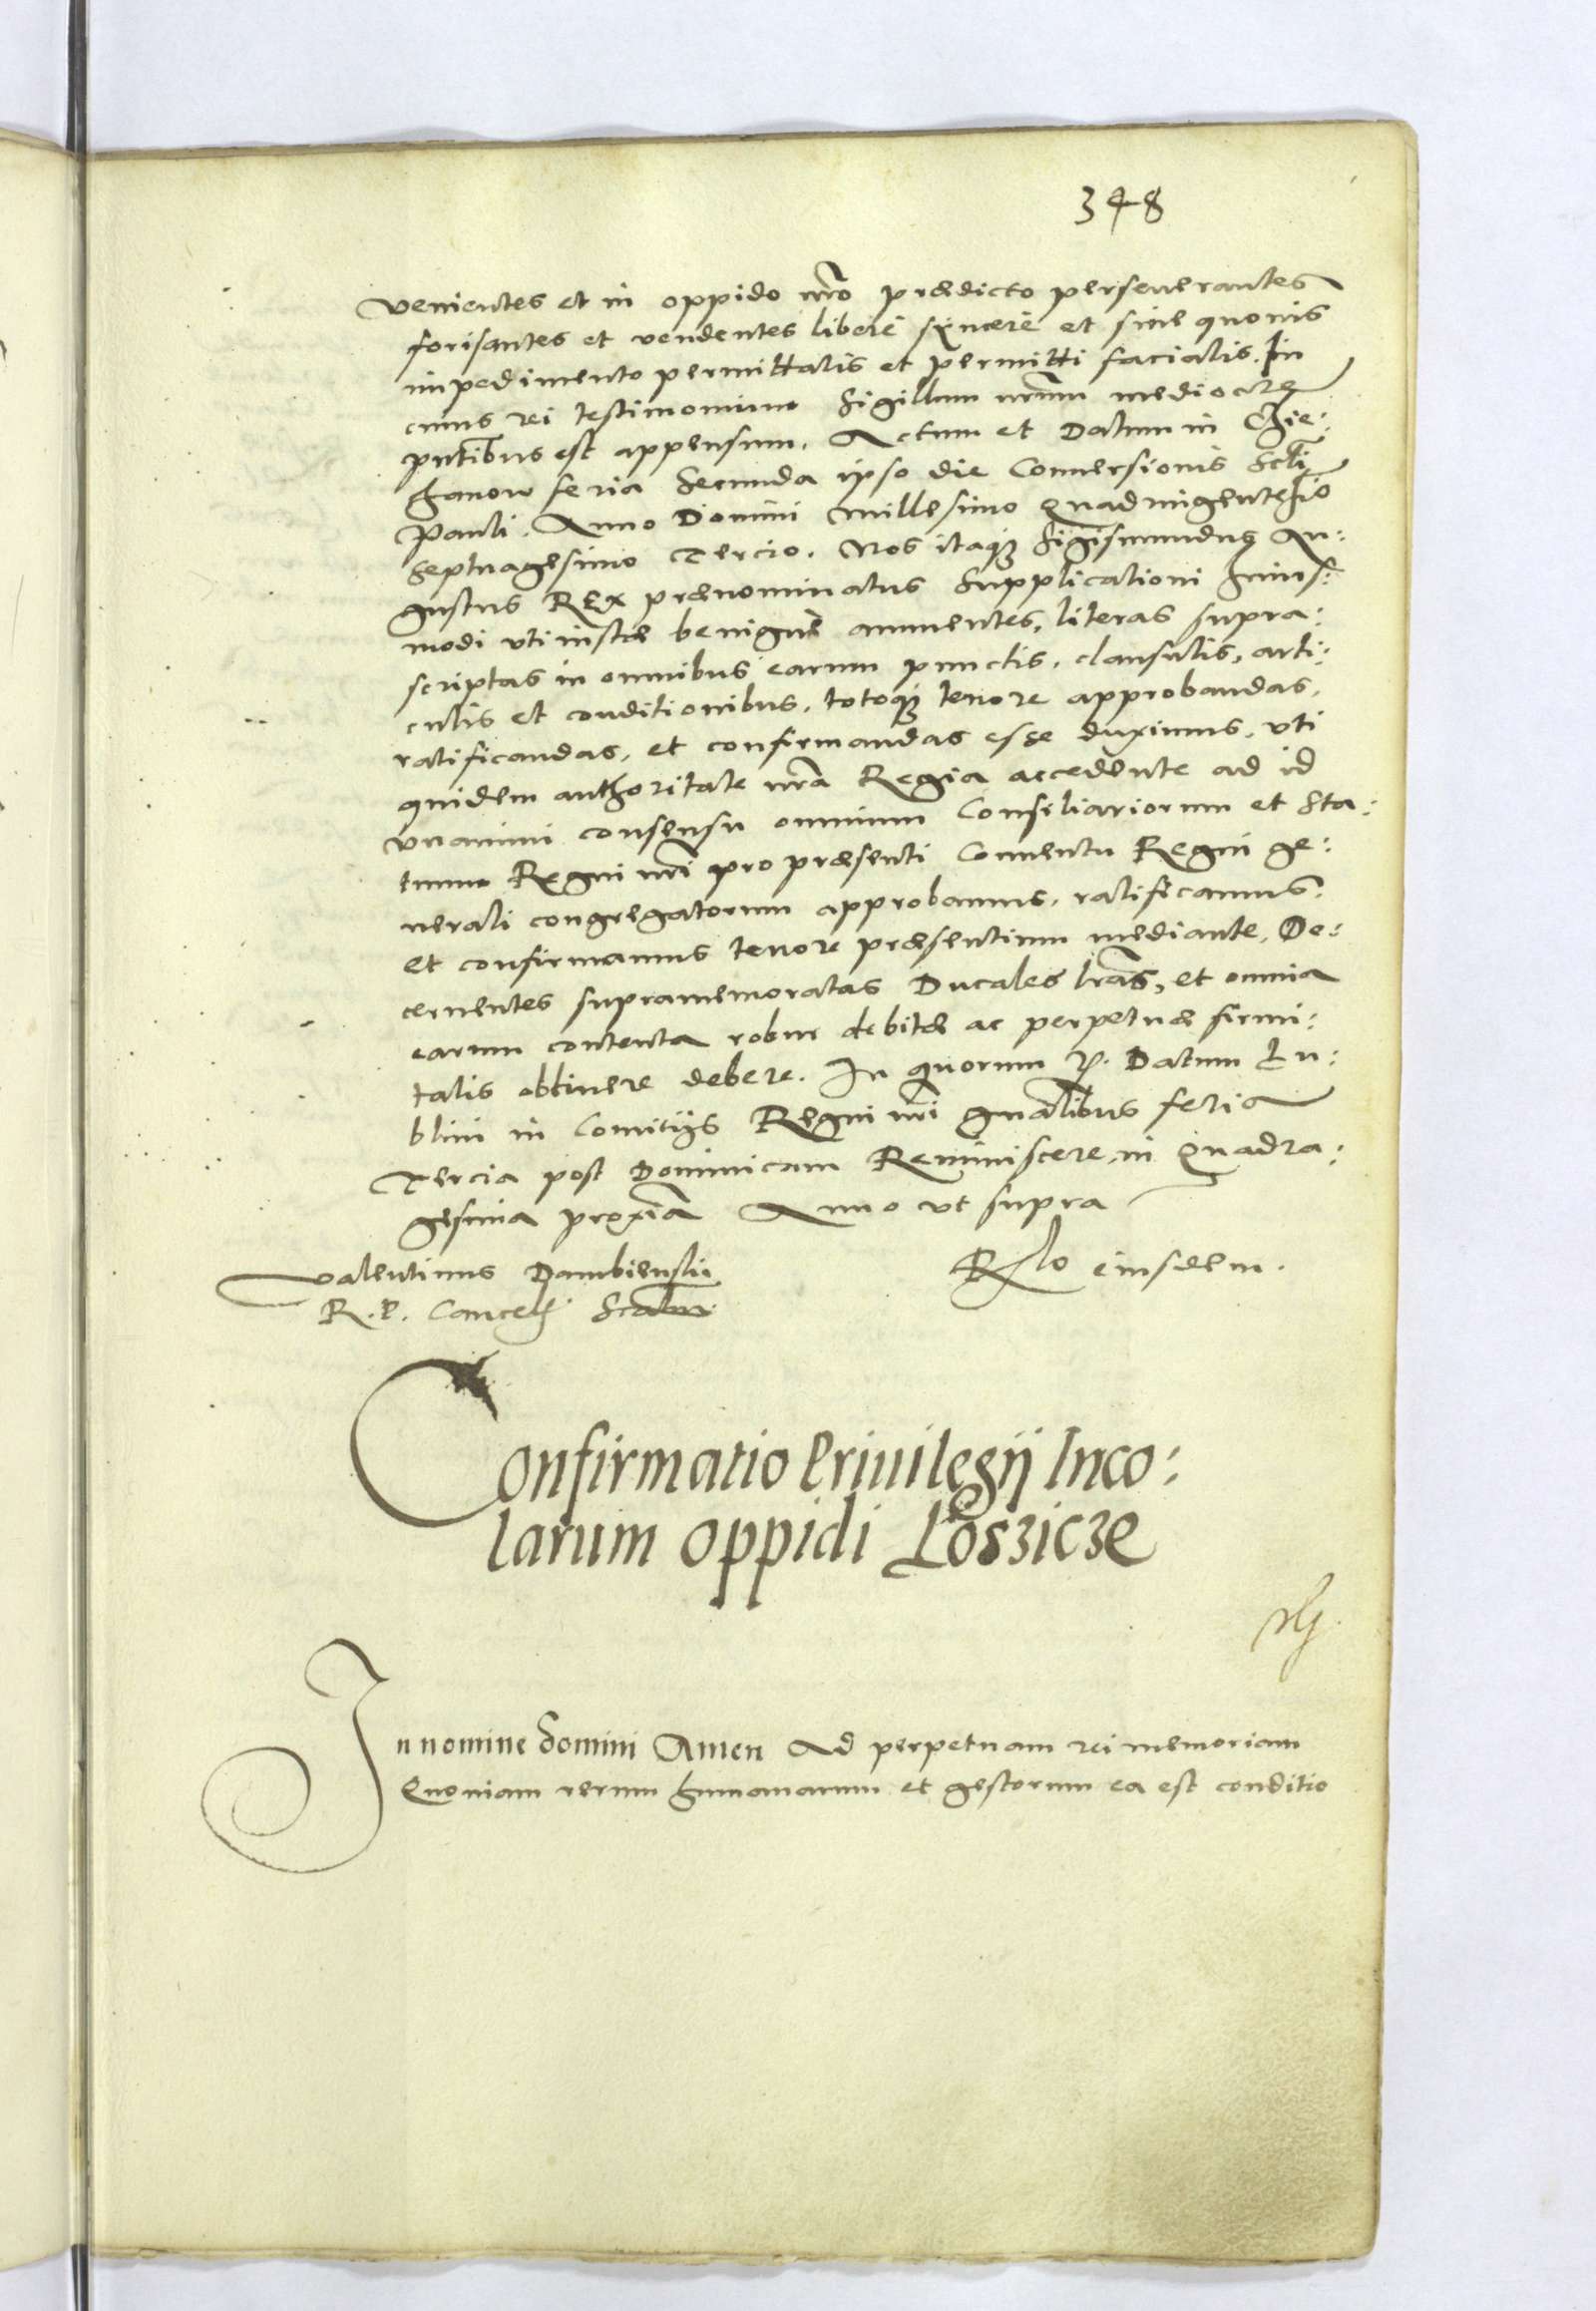 348
venientes et in oppido nro prædicto perseuerantes
forisantes et vendentes liberè syncerè et sine quouis
impedimento permittatis et permitti faciatis. In
cuius rei testimonium Sigillum nrum mediocre
pntibus est appensum. Actum et Datum in Czie:
chanow feria Secunda ipso die Conuersionis Scti
Pauli. Anno Domini Millesimo Quadringentesio
Septuagesimo Tercio. Nos itaq Sigismundus Au:
gustus Rex prænominatus Supplicationi huius:
modi vti iustæ benignè annuentes, literas supra:
scriptas in omnibus earum punctis, clausulis, arti:
culis et conditionibus, totoq tenore approbandas,
ratificandas, et confirmandas esse duximus, vti
quidem authoritate nra Regia accedente ad id
vnanimi consensu omnium Consiliariorum et Sta:
tuum Regni nri pro præsenti Conuentu Regni ge:
nerali congregatorum approbamus, ratificamus
et confirmamus tenore præsentium mediante, De:
cernentes supramemoratas Ducales lras, et omnia
earum contenta robur debitæ ac perpetuæ firmi:
tatis obtinere debere. In quorum Datum Lu:
blini in Comitijs Regni nri gnalibus feria
Tercia post Dominicam Reminiscere, in Quadra:
gesima proxia Anno vt supra
Valentinus Dambienski
R. P. Cancell
Rlo eiusdem.
Confirmatio Priuilegij Inco:
larum oppidi Loszicze
In nomine domini Amen Ad perpetuam rei memoriam
Quoniam rerum humanarum et gestorum ea est conditio